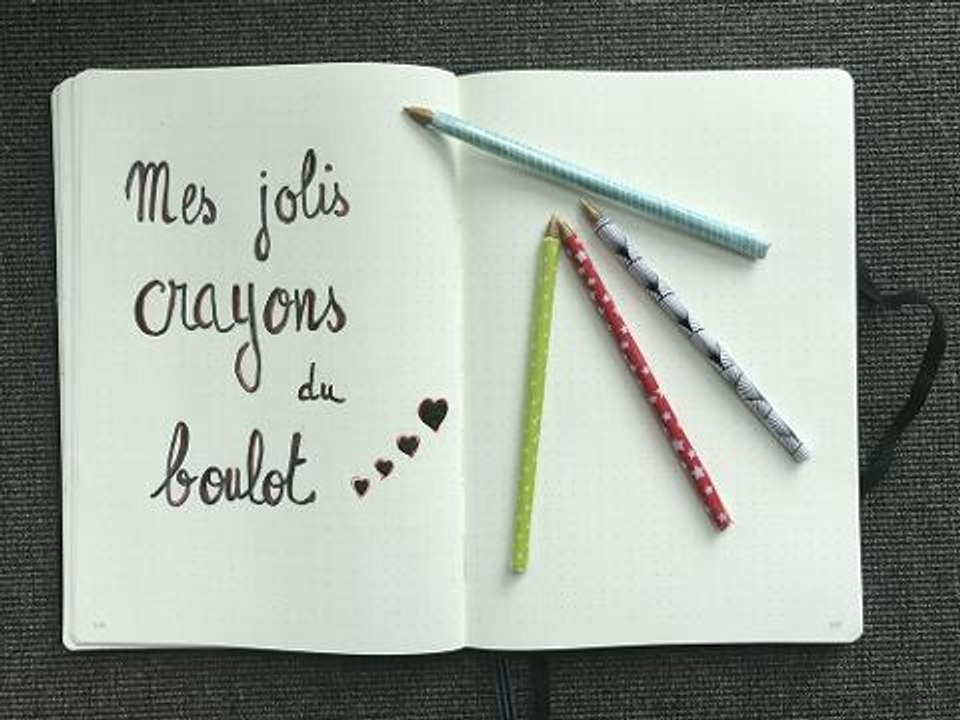 Mes jolis
crayons
du
boulot